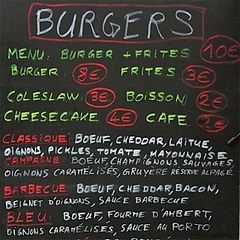 BURGERS
MENU: BURGER + FRITES 10€
BURGER: 8€ FRITES 3€
COLESLAW: 3€ BOISSON 2€
CHEESECAKE 4€ CAFE 2€
CLASSIQUE: BOEUF, CHEDDAR, LAITUE,
OIGNONS, PICKLES, TOMATE, MAYONNAISE
CAMPAGNE: BOEUF, CHAMPIGNONS SAUVAGES,
OIGNONS CARAMELISÉS, GRUYERE RESERVE ALPAGE
BARBECUE: BOEUF, CHEDDAR, BACON,
BEIGNET D'OIGNONS, SAUCE BARBECUE
BLEU: BOEUF, FOURME D'AMBERT,
OIGNONS CARAMELISES, SAUCE AU PORTO